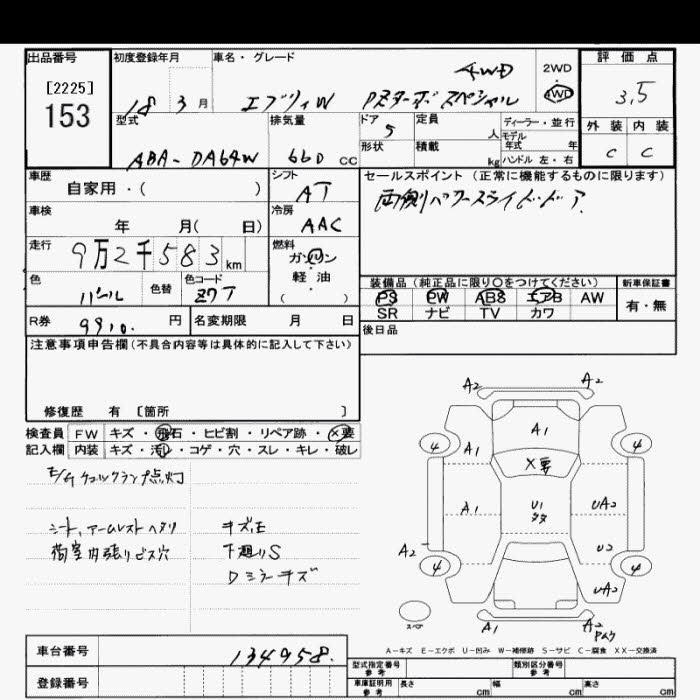 出品番号
[2225]
153
初度登録年月
18 3月
車名・グレード
エブリィW PZターボスペシャル 4WD
2WD
4WD
評価点
3.5
外装 内装
C C
型式
ABA-DA64W
排気量
660 CC
ドア
5
形状
定員
人
積載
kg
ディーラー・並行
モデル
年式 年
ハンドル 左・右
車歴
自家用・( )
シフト
AT
セールスポイント(正常に機能するものに限ります)
両側パワースライドドア
車検
年 月( 日)
冷房
AAC
走行
9万2千583km
燃料
ガソリン
軽・油
( )
色
パール
色替
色コード
Z7T
装備品(純正品に限り〇をつけてください)
PS PW ABS エアB AW
SR ナビ TV カワ
新車保証書
有・無
R券
9910. 円
名変期限 月 日
後日品
注意事項申告欄(不具合内容等は具体的に記入して下さい)
修復歴 有 [箇所 ]
検査員
記入欄
FW キズ・飛石・ヒビ割・リペア跡・×要
内装 キズ・汚れ・コゲ・穴・スレ・キレ・破レ
点灯
シート、アームレストヘタリ
荷室内張りビス穴
キズE
下廻りS
Dミラーキズ
A2 A2
4 A1 A1 4
X要
A1 U1 UA2
A2 U2
4 4
UA2
スペア
A1 A2
A-キズ E-エクボ U-凹み W-補修跡 S-サビ C-腐食 XX-交換済
車台番号
134958.
登録番号
型式指定番号
参考
類別区分番号
参考
車庫証明用
参考
長さ cm 幅 cm 高さ cm